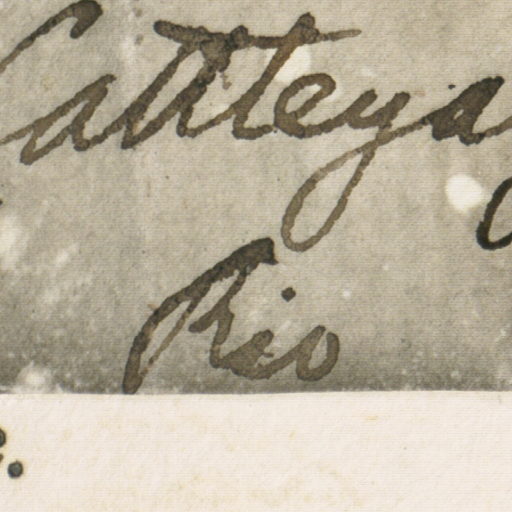 Cattleya
Rio